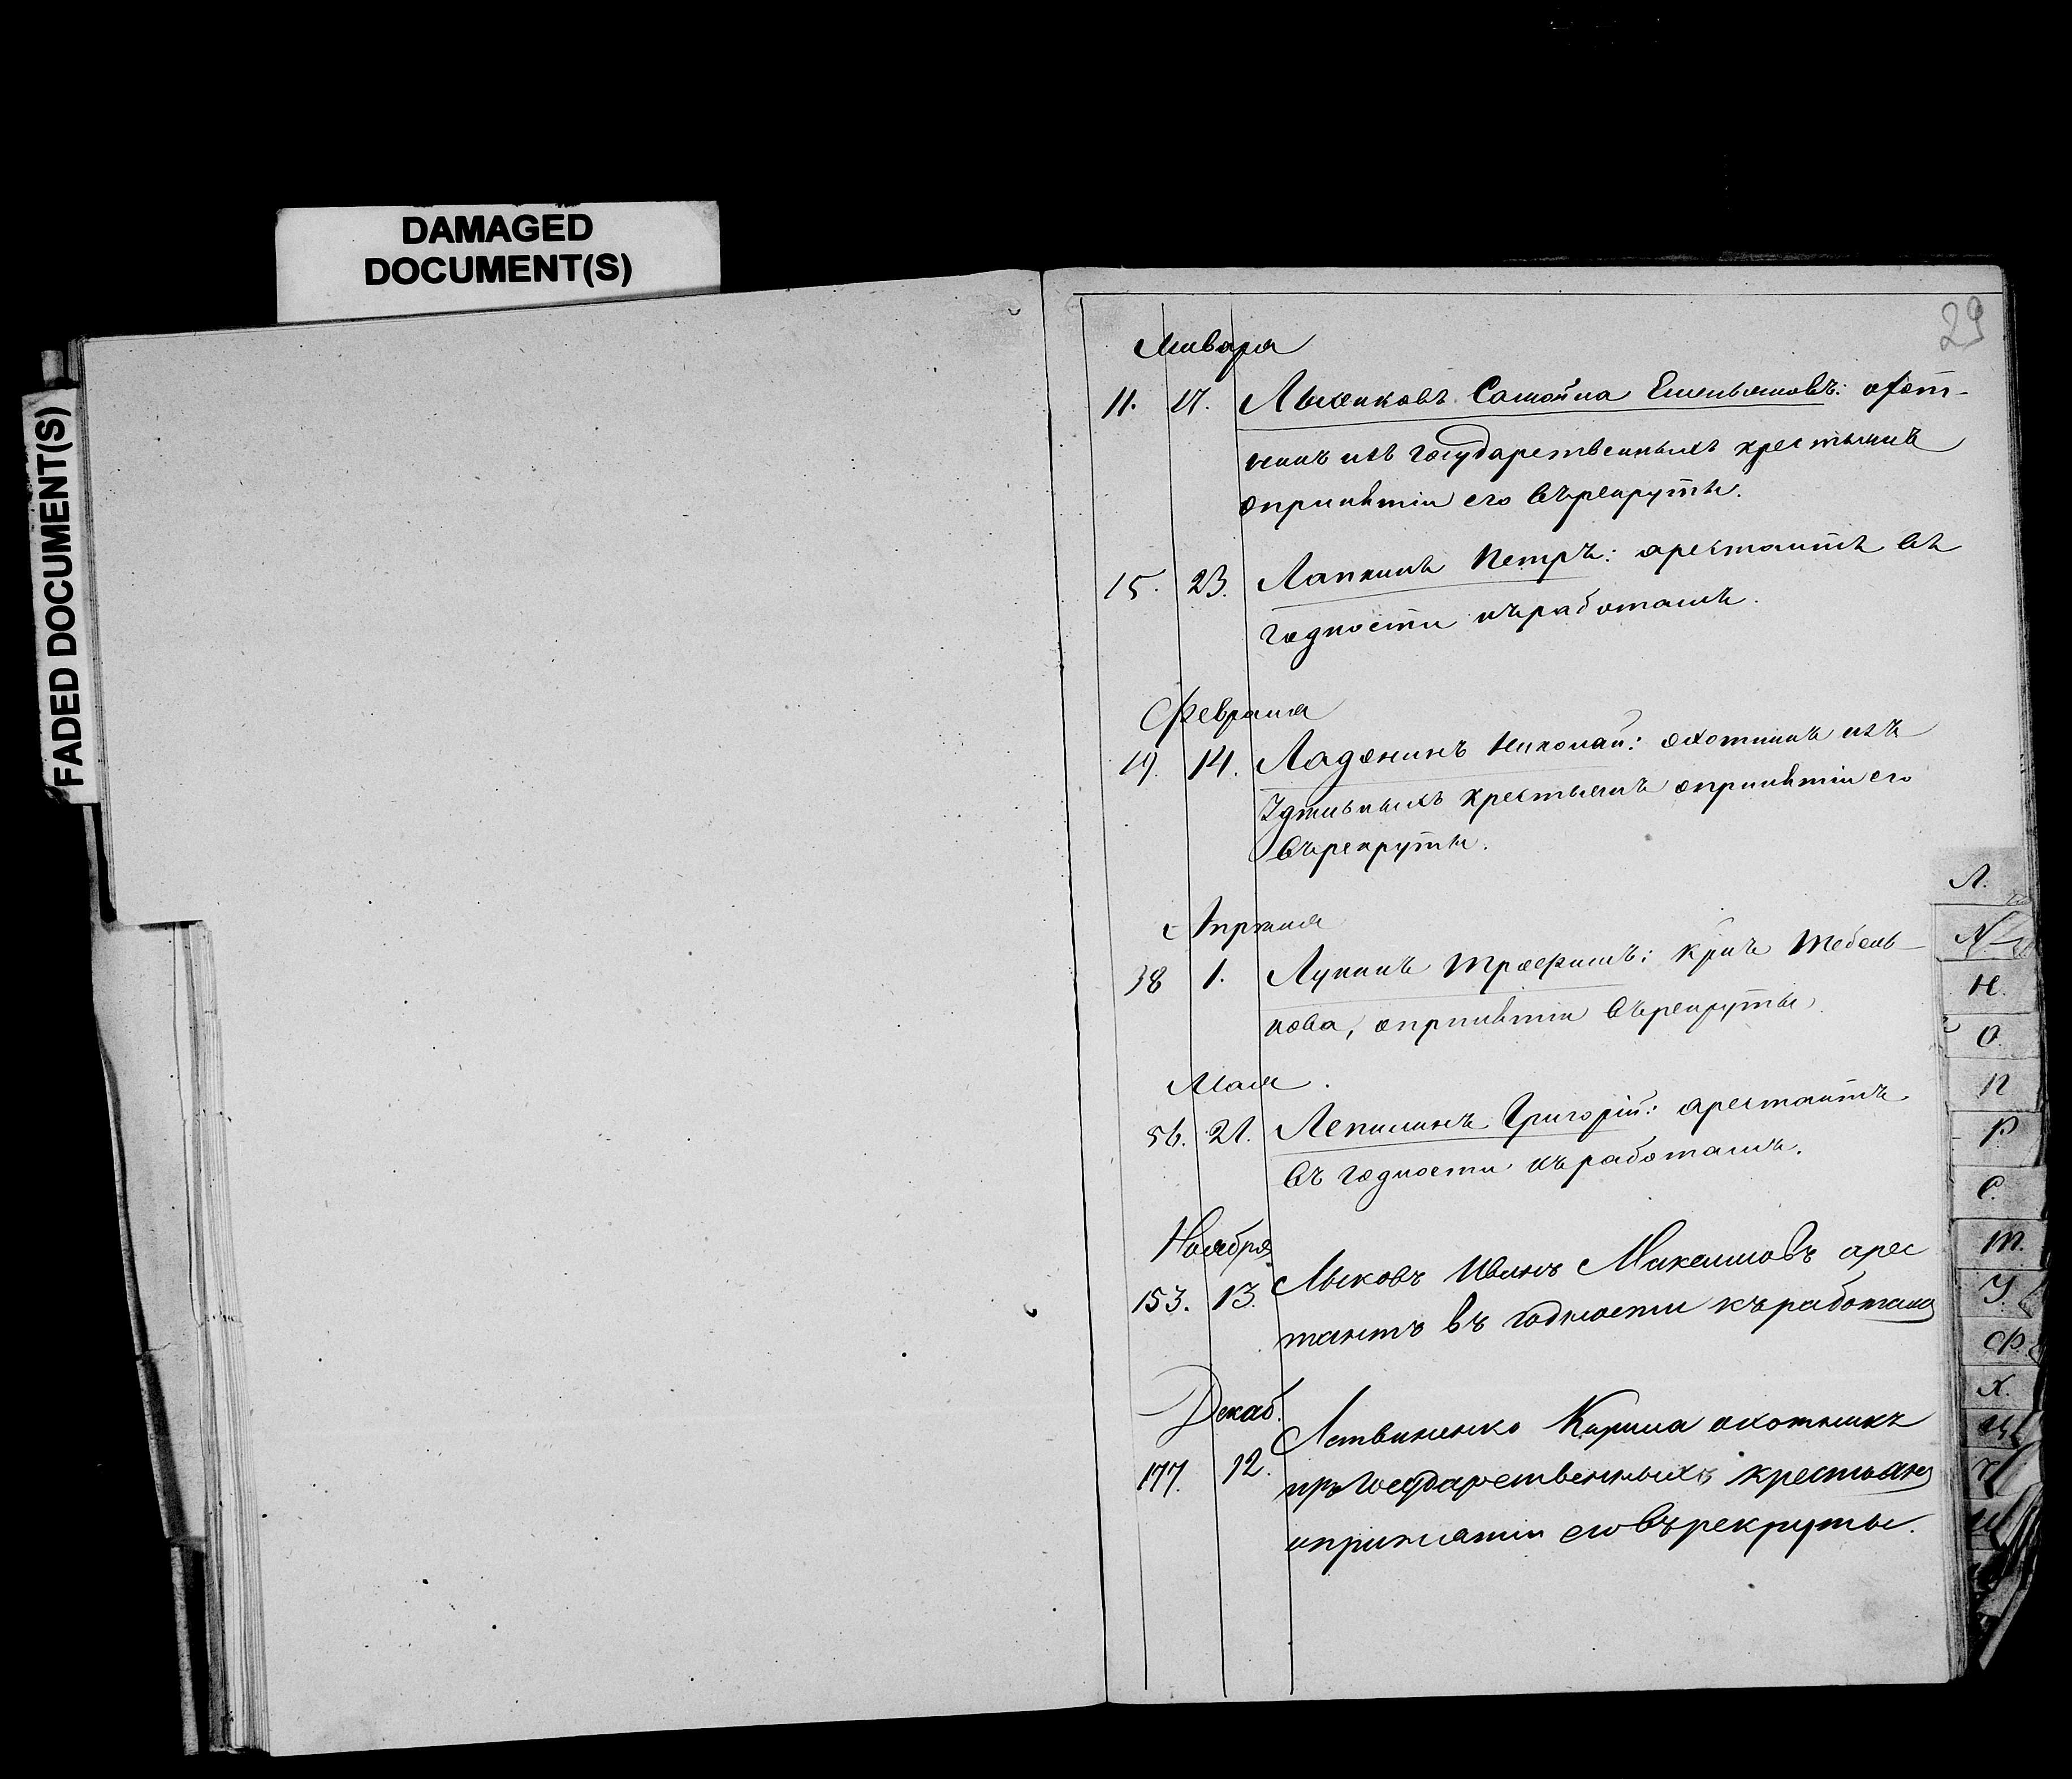 DAMAGED
DOCUMENT(S)
FADED DOCUMENT(S)
29
Января
11. 17. Лысенковъ Самойла Емельяновъ: охот-
никъ изъ государственныхъ крестьянъ
опринятiи его върекруты.
15. 23. Лапкинъ Петръ: арестантъ въ
годности къработамъ.
Февраля
19. 14. Ладонинъ Николай: охотникъ изъ
Удѣльныхъ крестьянъ опринятiи его
върекруты.
Апрѣля
38 1. Лунинъ Трофимъ: кр̃нъ Тебень-
кова, опринятiи върекруты.
Мая.
56. 21. Лепилинъ Григорiй: арестантъ
въ годности къработамъ.
Ноября
153. 13. Лыковъ Иванъ Максимовъ арес
тантъ въ годности къработамъ
Декаб.
177. 12. Литвиненко Кирила охотникъ
государственныхъ крестьянъ
опринятiи еговърекруты.
Л.
Н.
О.
П
Р
С.
Т.
У.
Ф.
Х.
Ц
Ч
Ш